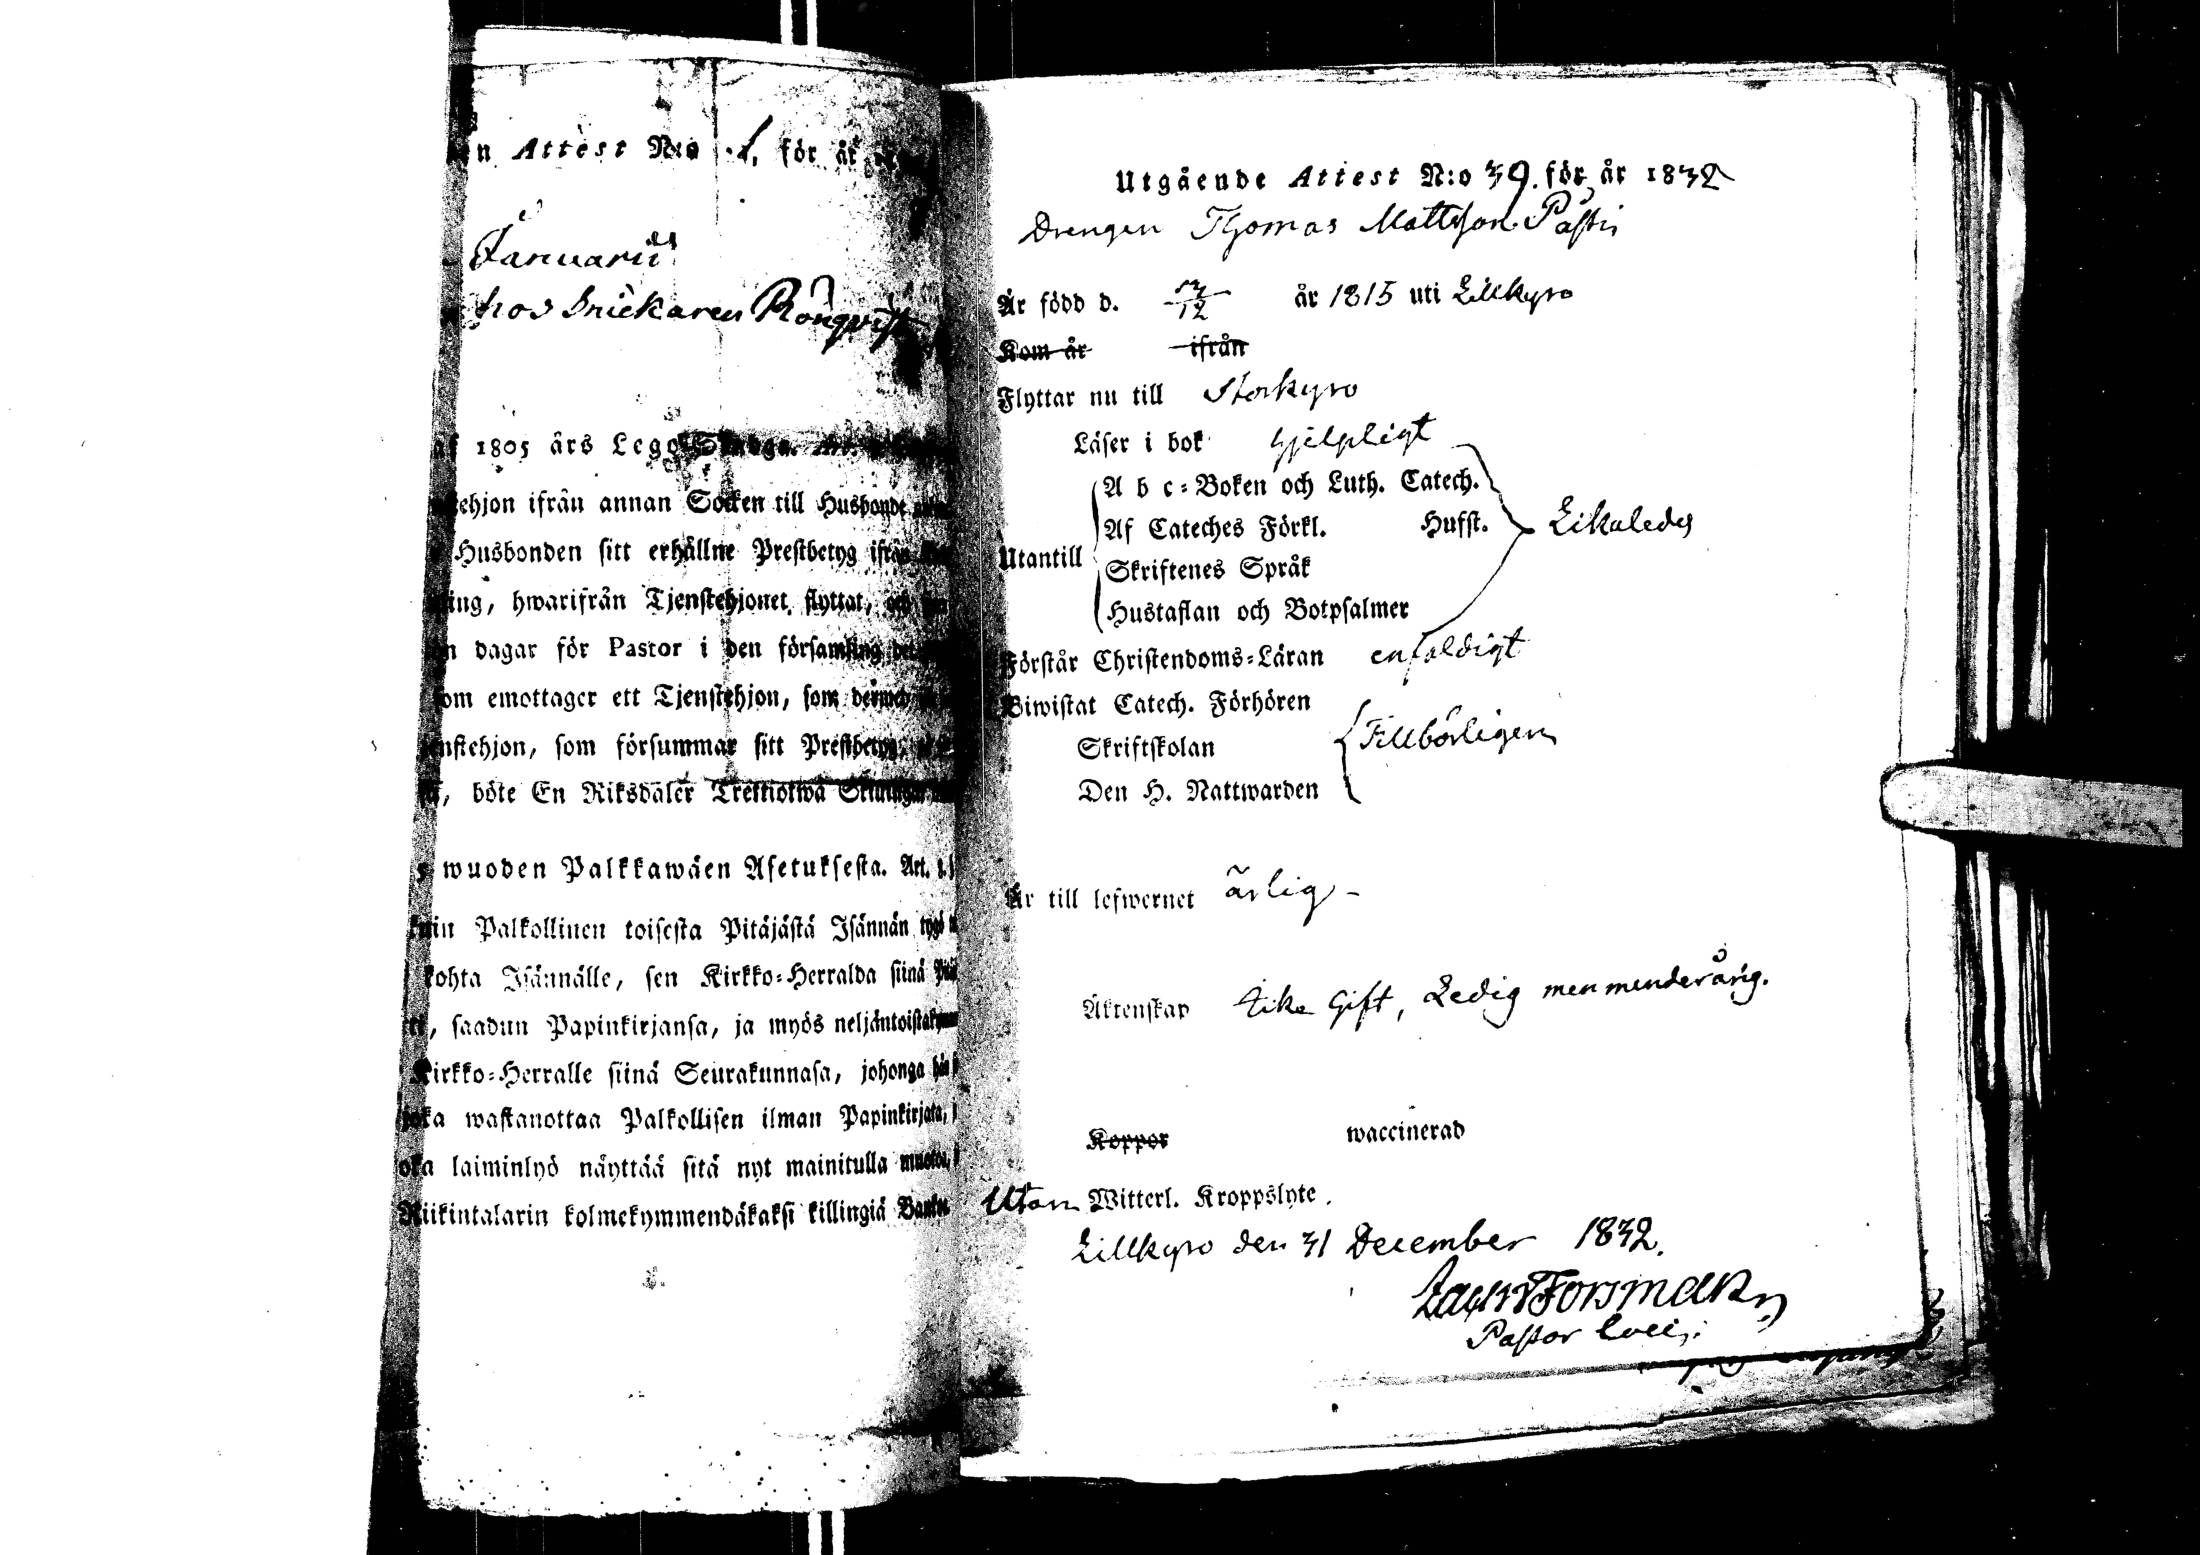 n Attest N:o 1, för år
Januarii
hos Snickaren Rönqvist
af 1805 års Lego-Stadga. Art.
stehjon ifrån annan Socken till Husbonde
Husbonden sitt erhållne Prestbetyg ifrån
ling, hwarifrån Tjenstehjonet flyttat, och
n dagar för Pastor i den församling
som emottager ett Tjenstehjon, som dermed
enstehjon, som försummar sitt Prestbetyg
böte En Riksdaler Trettiotwå Skillingar
5 wuoden Palkkawäen Asetuksesta. Art.
kuin Palkollinen toisesta Pitäjästä Isännän tygö
kohta Isännälle, sen Kirkko-Herralda siinä
saadun Papinkirjansa, ja myös neljäntoistakymmenen
Kirkko-Herralle siinä Seurakunnasa, johonga hän
joka wastanottaa Palkollisen ilman Papinkirjata,
oka laiminlyö näyttää sitä nyt mainitulla muotoa,
Riikintalarin kolmekymmendäkaksi killingiä Banko
Utgående Attest N:o 39. för år 1832
Drengen Thomas Mattsson Påsti
Är född d. 13/12 år 1815 uti Lillkyro
Kom år ifrån
Flyttar nu till Storkyro
Läser i bok hjelpligt
A b c-Boken och Luth. Catech.
Af Cateches Förkl. Husst. Likaledes
Utantill
Skriftenes Språk
Hustaflan och Botpsalmer
Förstår Christendoms-Läran enfaldigt
Biwistat Catech. Förhören
Skriftskolan Tillbörligen
Den H. Nattwarden
Är till lefwernet ärlig
Äktenskap Icke Gift, Ledig men menderårig.
Koppor waccinerad
Utan Witterl. Kroppslyte.
Lillkyro den 31 December 1832.
Forsman
Pastor Loci